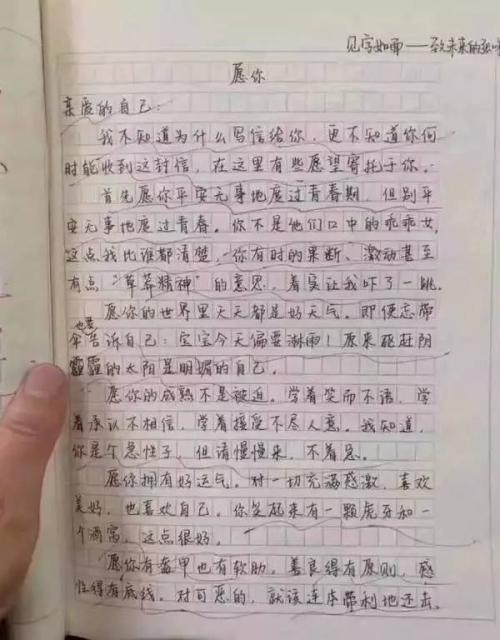 见字如面——致未来的张
愿你
亲爱的自己：
我不知道为什么写信给你，更不知道你何
时能收到这封信，在这里有些愿望寄托于你。
首先愿你平安无事地度过青春期，但别平
安无事地度过青春。你不是他们口中的乖乖女，
这点我比谁都清楚，你有时的果断、激动甚至
有点“草莽精神”的意思，着实让我吓了一跳。
愿你的世界里天天都是好天气。即便忘带
也要
伞告诉自己：宝宝今天偏要淋雨！原来驱赶阴
霾的太阳是明媚的自己。
愿你的成熟不是被迫。学着笑而不语，学
着承认不相信，学着接受不尽人意。我知道，
你是个急性子，但请慢慢来，不着急。
愿你拥有好运气。对一切充满感激，喜欢
美好，也喜欢自己。你笑起来有一颗虎牙和一
个酒窝，这点很好。
愿你有盔甲也有软肋。善良得有原则，感
性得有底线。对可恶的，就该连本带利地还击。